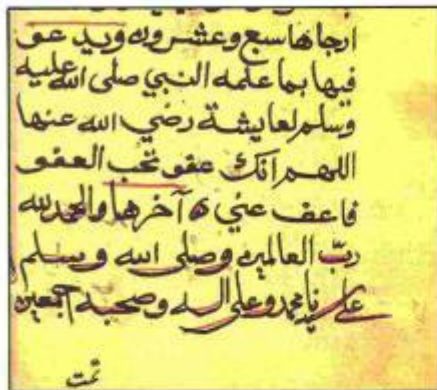 ارجاها سبع وعشرون ويدعو
فيها بما علمه النبي صلى الله عليه
وسلم لعايشة رضي الله عنها
اللهم انك عفو تحب العفو
فاعف عني ه آخرها والحمد لله
ربّ العالمين وصلى الله وسلم
على سيدنا محمد وعلى اله وصحبه اجمعين
تمت